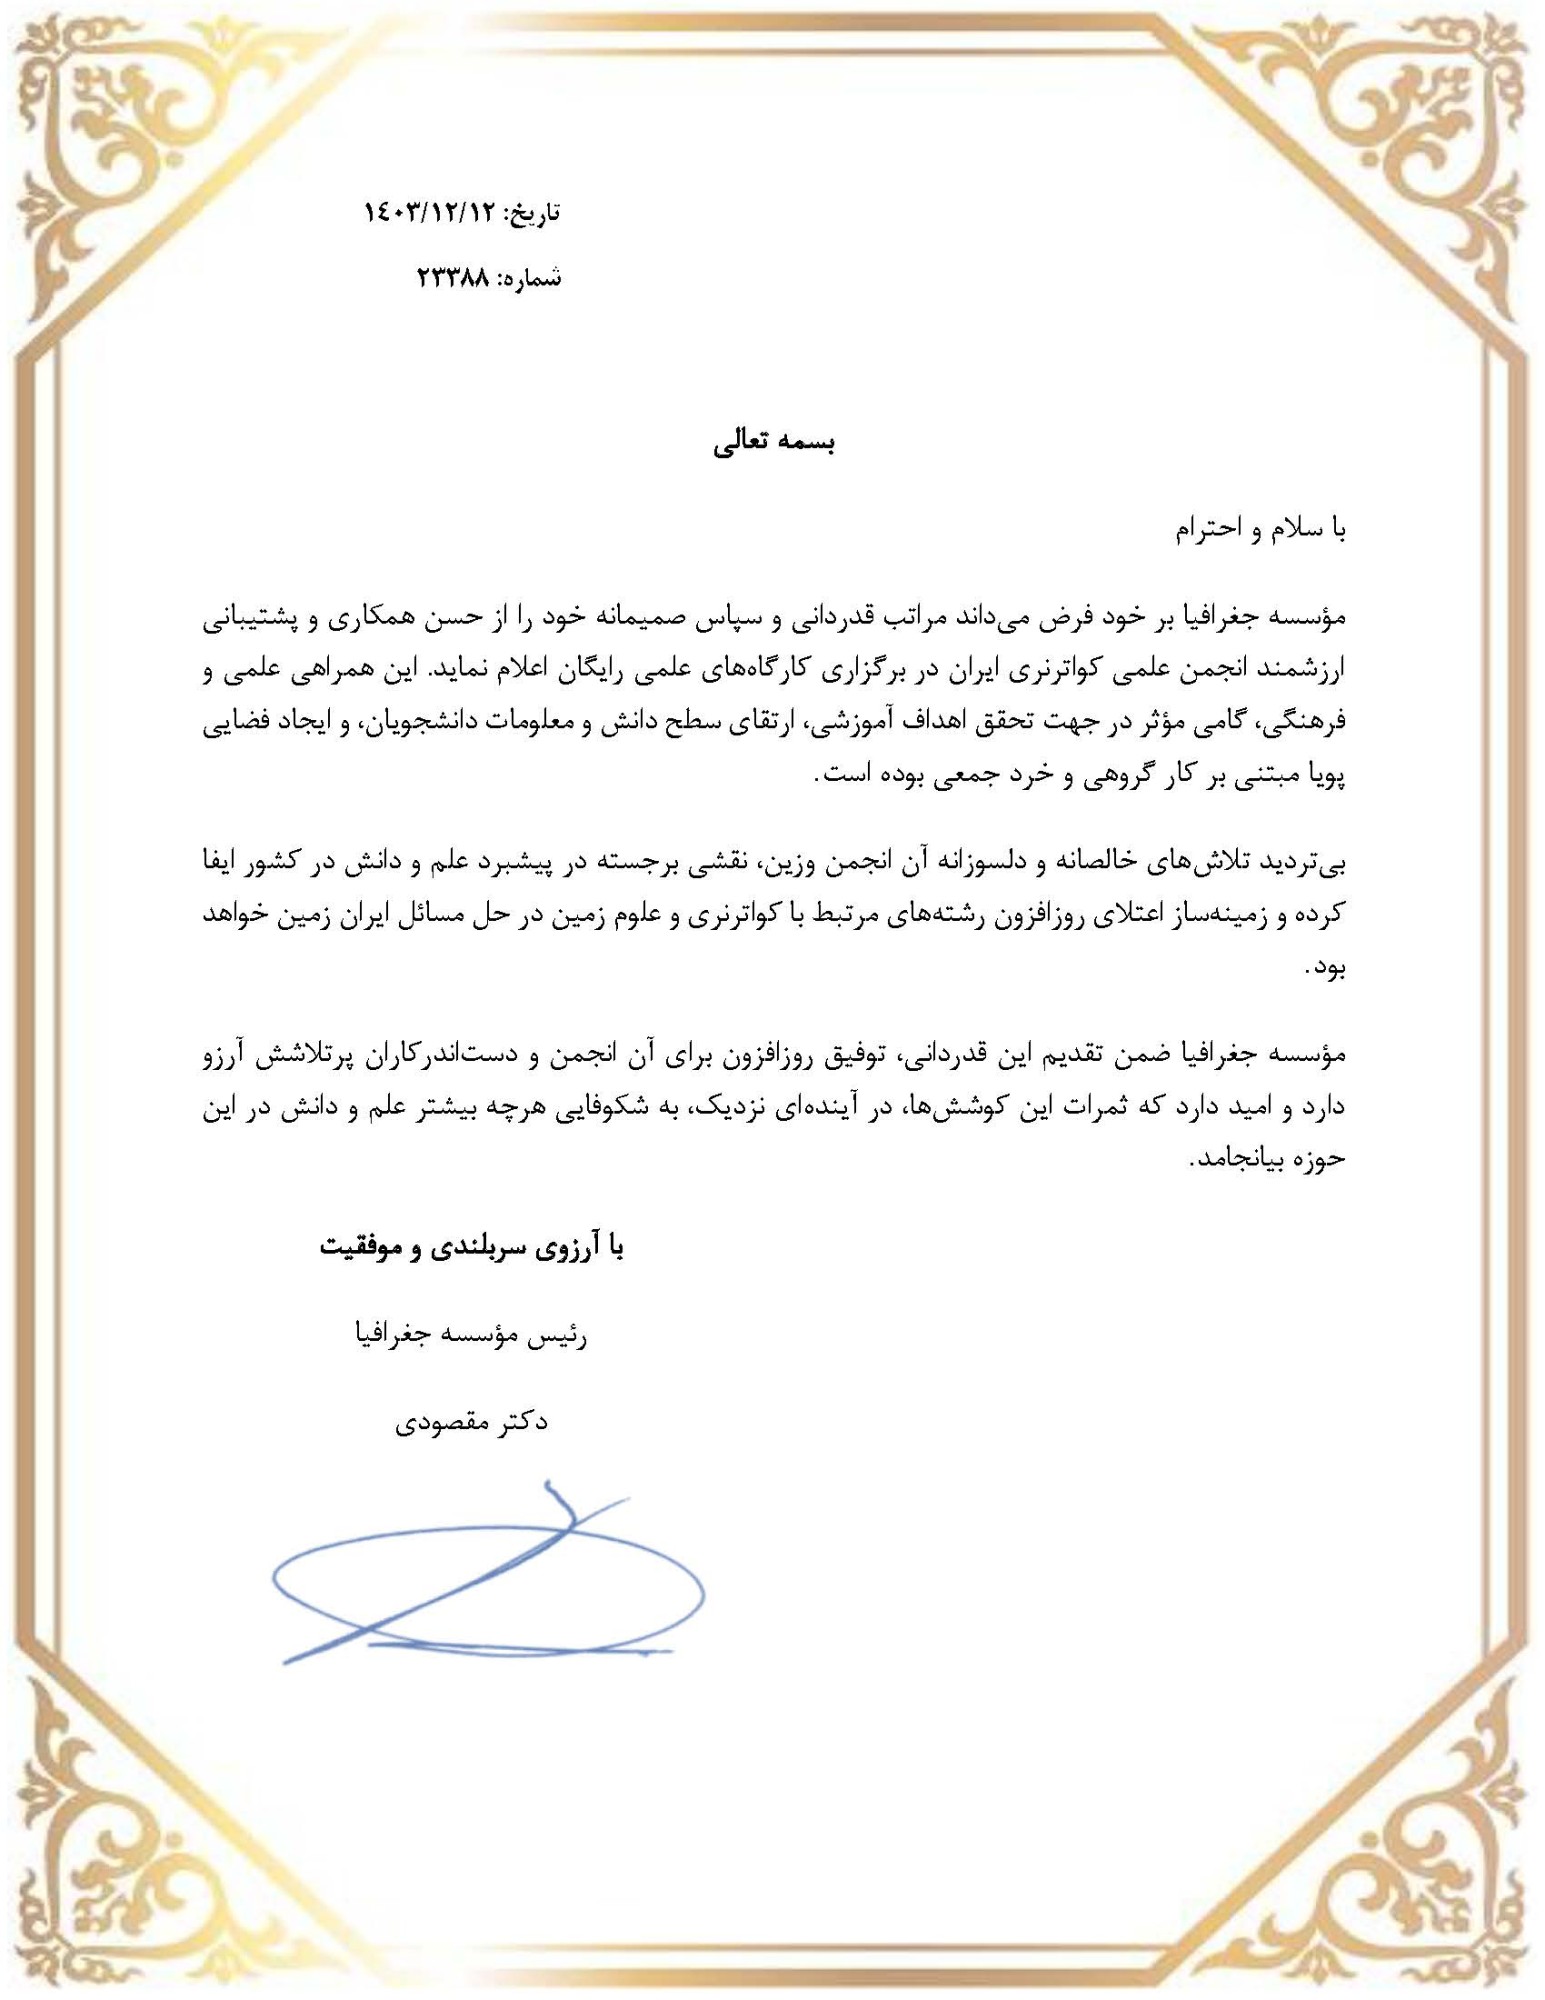 تاریخ: ۱٤۰۳/۱۲/۱۲
شماره: ۲۳۳۸۸
بسمه تعالی
با سلام و احترام
مؤسسه جغرافیا بر خود فرض می‌داند مراتب قدردانی و سپاس صمیمانه خود را از حسن همکاری و پشتیبانی
ارزشمند انجمن علمی کواترنری ایران در برگزاری کارگاه‌های علمی رایگان اعلام نماید. این همراهی علمی و
فرهنگی، گامی مؤثر در جهت تحقق اهداف آموزشی، ارتقای سطح دانش و معلومات دانشجویان، و ایجاد فضایی
پویا مبتنی بر کار گروهی و خرد جمعی بوده است.
بی‌تردید تلاش‌های خالصانه و دلسوزانه آن انجمن وزین، نقشی برجسته در پیشبرد علم و دانش در کشور ایفا
کرده و زمینه‌ساز اعتلای روزافزون رشته‌های مرتبط با کواترنری و علوم زمین در حل مسائل ایران زمین خواهد
بود.
مؤسسه جغرافیا ضمن تقدیم این قدردانی، توفیق روزافزون برای آن انجمن و دست‌اندرکاران پرتلاشش آرزو
دارد و امید دارد که ثمرات این کوشش‌ها، در آینده‌ای نزدیک، به شکوفایی هرچه بیشتر علم و دانش در این
حوزه بیانجامد.
با آرزوی سربلندی و موفقیت
رئیس مؤسسه جغرافیا
دکتر مقصودی